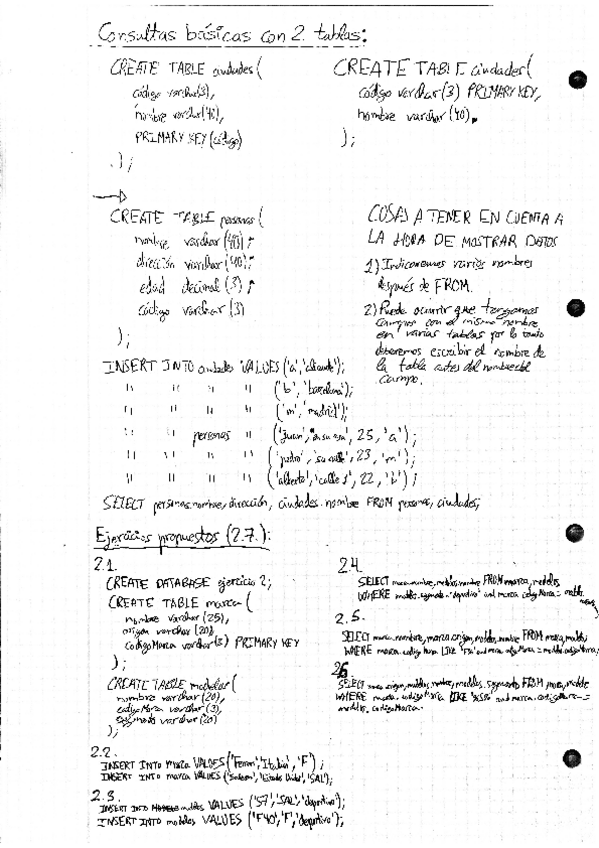 Consultas básicas con 2 tablas:
CREATE TABLE ciudades(
código varchar(3),
nombre varchar(40),
PRIMARY KEY (código)
);
CREATE TABLE ciudades(
código varchar(3) PRIMARY KEY,
nombre varchar(40),
);
CREATE TABLE personas(
nombre varchar(40),
dirección varchar(40),
edad decimal(3),
código varchar(3)
);
COSAS A TENER EN CUENTA A
LA HORA DE MOSTRAR DATOS
1) Indicaremos varios nombres
después de FROM.
2) Puede ocurrir que tengamos
campos con el mismo nombre
en varias tablas por lo tanto
deberemos escribir el nombre de
la tabla antes del nombre del
campo.
INSERT INTO ciudades VALUES ('a','alicante');
" " " " ('b','barcelona');
" " " " ('m','madrid');
" " personas " ('juan', 'su casa', 25, 'a');
" " " " ('pedro', 'su calle', 23, 'm');
" " " " ('alberto', 'calle 1', 22, 'b');
SELECT personas.nombre, dirección, ciudades.nombre FROM personas, ciudades;
Ejercicios propuestos (2.7.):
2.1.
CREATE DATABASE ejercicio2;
CREATE TABLE marca(
nombre varchar(25),
origen varchar(20),
codigoMarca varchar(3) PRIMARY KEY
);
CREATE TABLE modelos(
nombre varchar(20),
codigoMarca varchar(3),
segmento varchar(20)
);
2.2.
INSERT INTO marca VALUES('Ferrari','Italia','F');
INSERT INTO marca VALUES ('Saleen','Estados Unidos','SAL');
2.3.
INSERT INTO modelos VALUES ('S7','SAL','deportivo');
INSERT INTO modelos VALUES ('F40','F','deportivo');
2.4.
SELECT marca.nombre, modelos.nombre FROM marca, modelos
WHERE modelos.segmento='deportivo' and marca.codigoMarca=modelos.
2.5.
SELECT marca.nombre, marca.origen, modelos.nombre FROM marca, modelos
WHERE marca.codigoMarca LIKE and marca.codigoMarca=modelos.codigoMarca;
2.6.
SELECT marca.origen, modelos.nombre, modelos.segmento FROM marca, modelos
WHERE marca.codigoMarca LIKE and marca.codigoMarca=
modelos.codigoMarca.